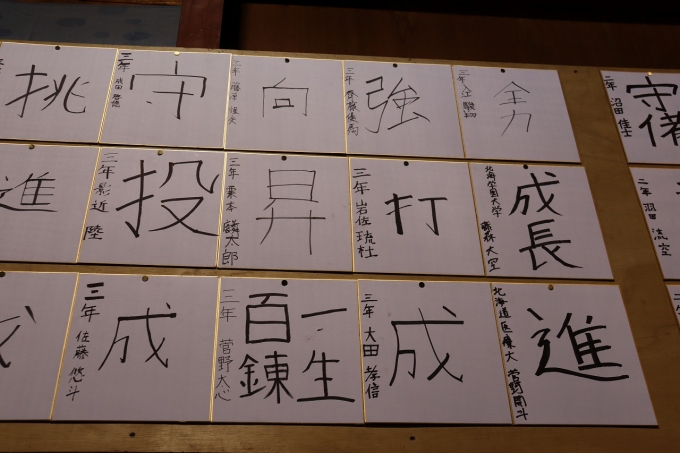 挑
三年
成田
守
二年
向
三年
強
三年
全力
二年
沼田
守備
進
三年
影近
陸
投
三年
栗本
麟太郎
昇
三年
岩佐
琉杜
打
北海学園大学
成長
二年
羽田
流空
三年
佐藤
悠斗
成
三年
菅野
大心
一生
百錬
三年
大田
孝信
成
北海道医療大
菅野開斗
進